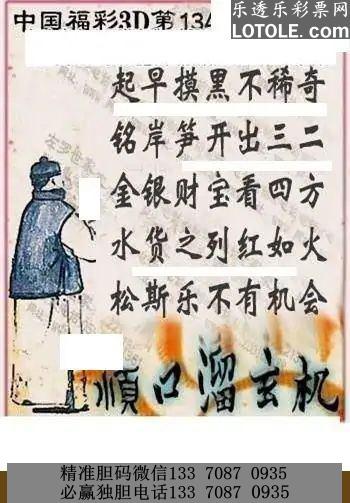 中国福彩3D第134
乐透乐彩票网
LOTOLE.COM
起早摸黑不稀奇
铭岸笋开出三二
金银财宝看四方
水货之列红如火
松斯乐不有机会
顺口溜玄机
精准胆码微信133 7087 0935
必赢独胆电话133 7087 0935